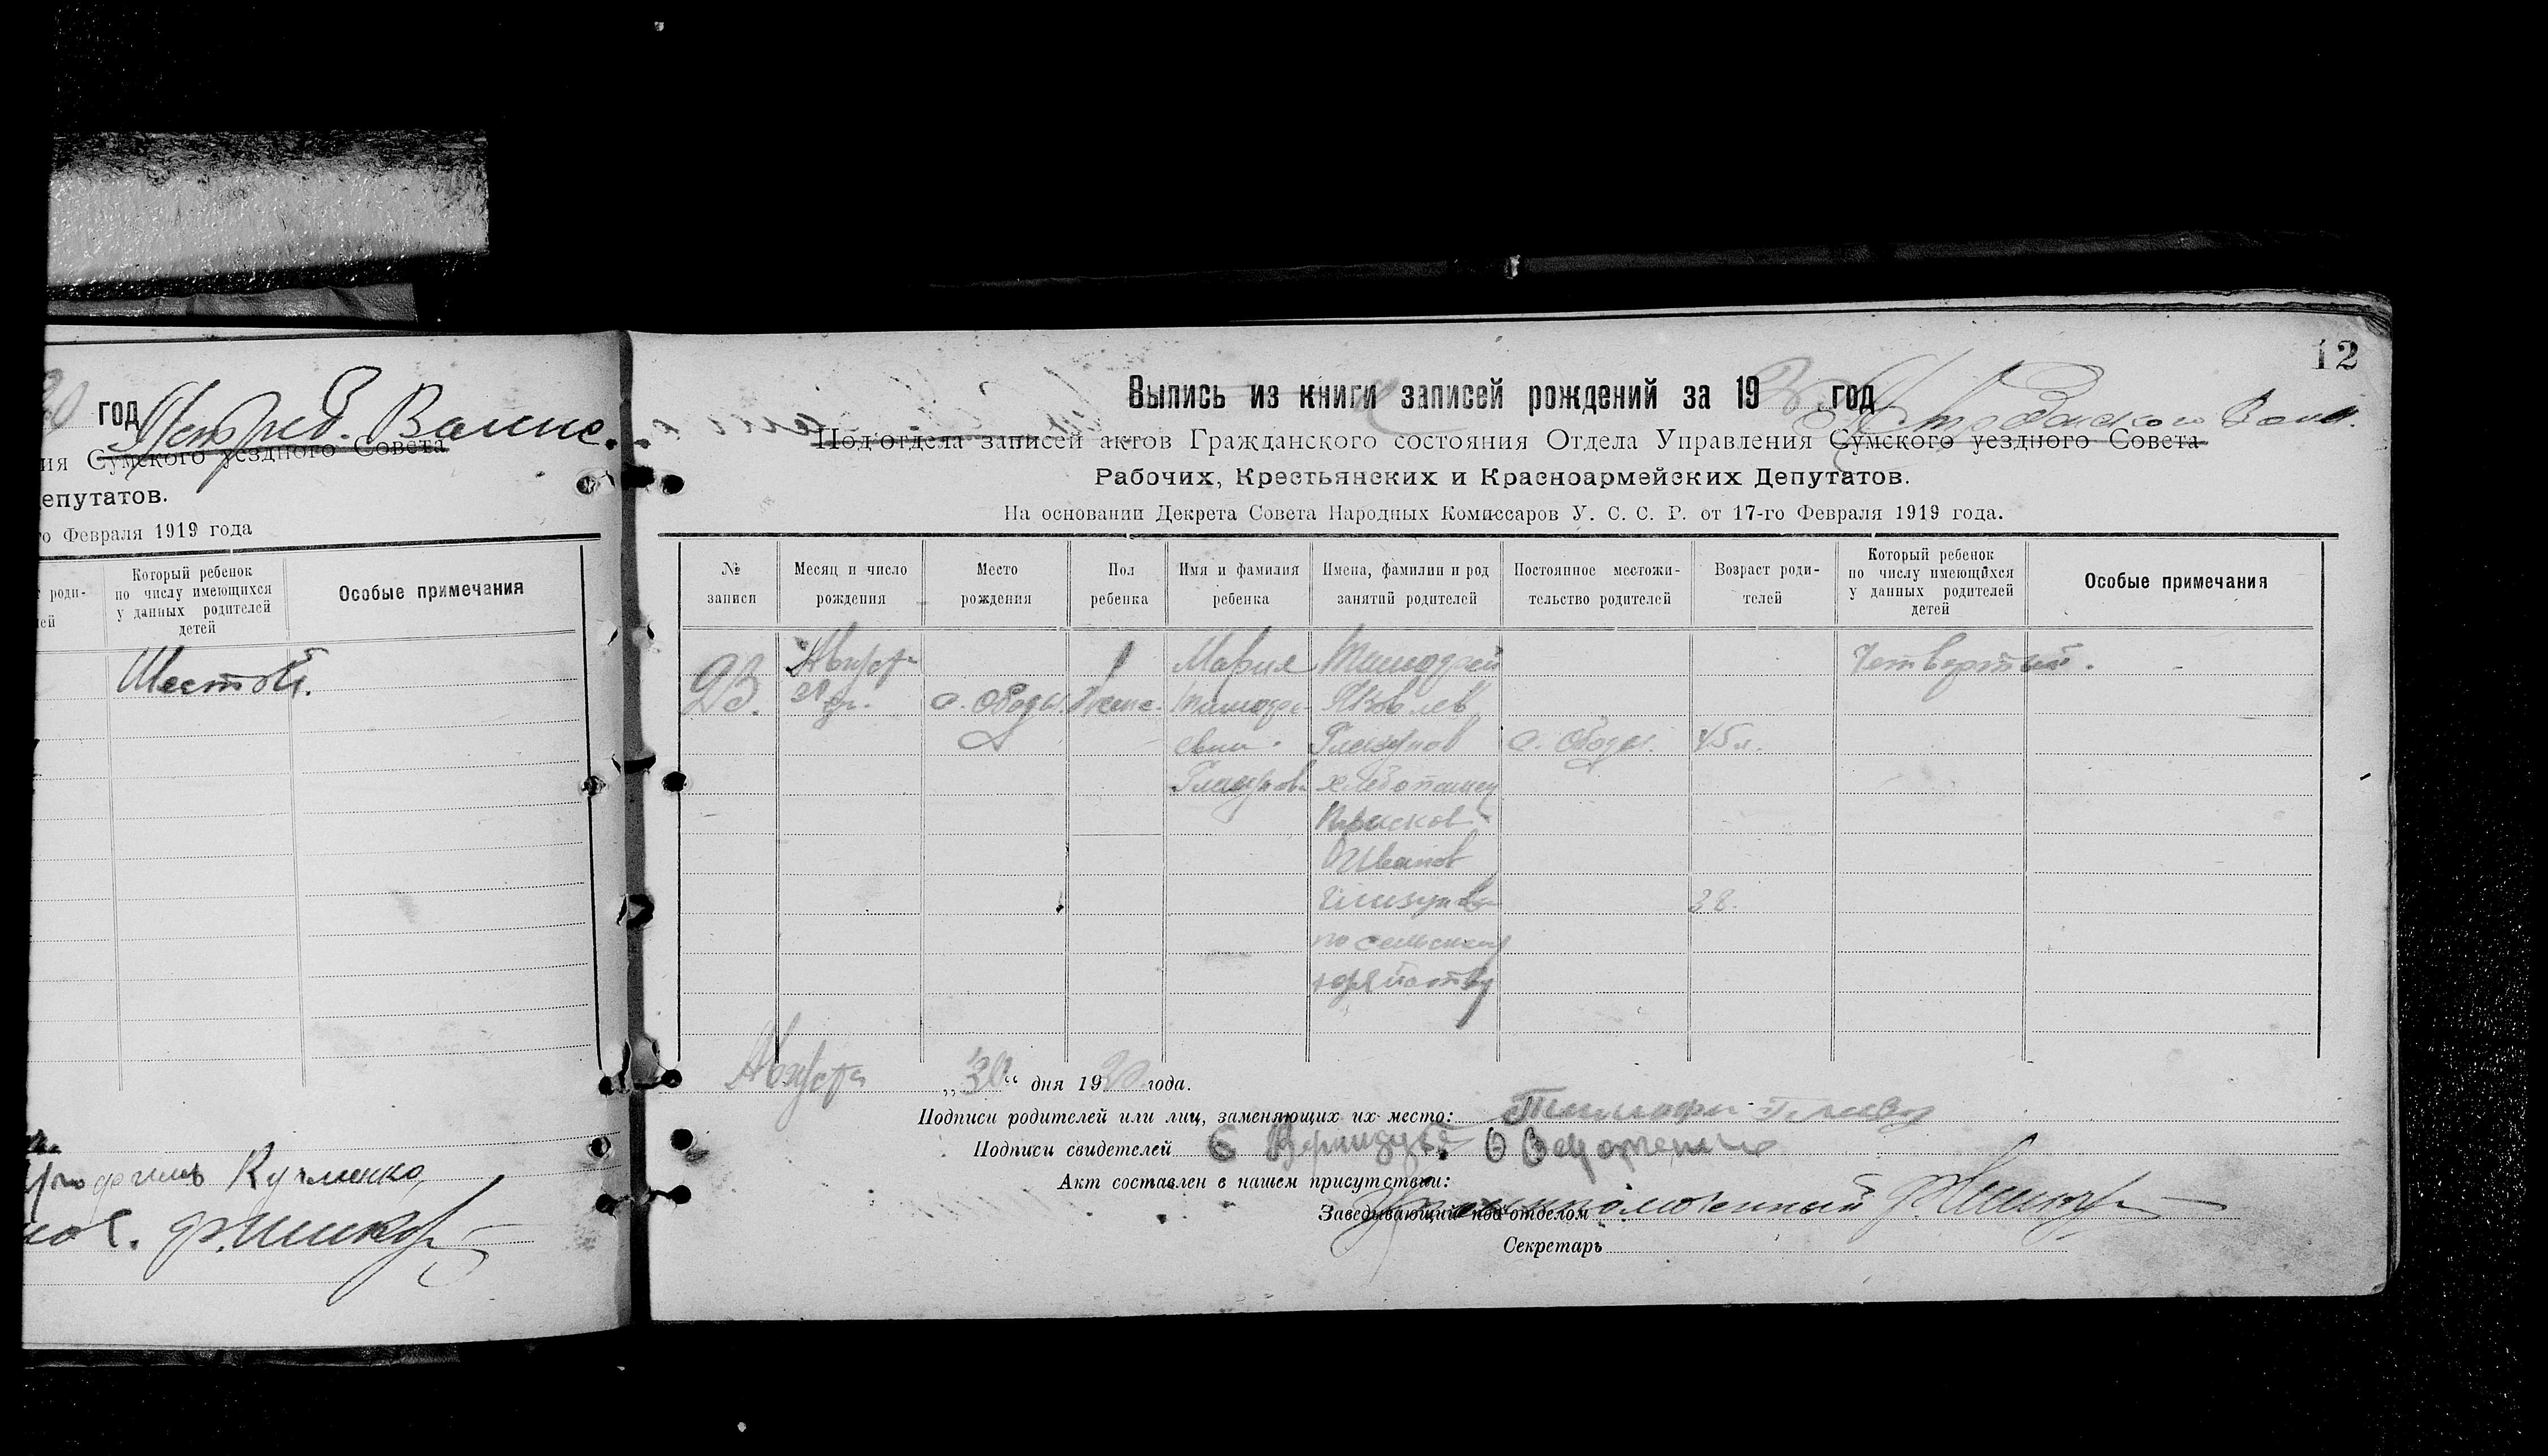 год
ия Сумского уездного Совета
епутатов.
го Февраля 1919 года
т роди-
лей
Который ребенок
по числу имеющихся
у данных родителей
детей
Особые примечания
Шестой.
Кузменко
12
Выпись из книги записей рождений за 19 год
Под'отдела записей актов Гражданского состояния Отдела Управления Сумского уездного Совета
Рабочих, Крестьянских и Красноармейских Депутатов.
На основании Декрета Совета Народных Комиссаров У. С. С. Р. от 17-го Февраля 1919 года.
№
записи
Месяц и число
рождения
Место
рождения
Пол
ребенка
Имя и фамилия
ребенка
Имена, фамилии и род
занятий родителей
Постоянное местожи-
тельство родителей
Возраст роди-
телей
Который ребенок
по числу имеющихся
у данных родителей
детей
Особые примечания
93.
Августа
30
с. Ободы
Женс.
Мария
Тимофе-
евна
Глазунова
Тимофей
Яковлев
Глазунов
хлебопашец
Иванов
по сельском
с. Ободы.
45 л.
38.
Четвертый.
Августа „30“ дня 1920 года.
Подписи родителей или лиц, заменяющих их место: Тимофей
Подписи свидетелей
Акт составлен в нашем присутствии:
Заведывающий под'отделом
Секретарь